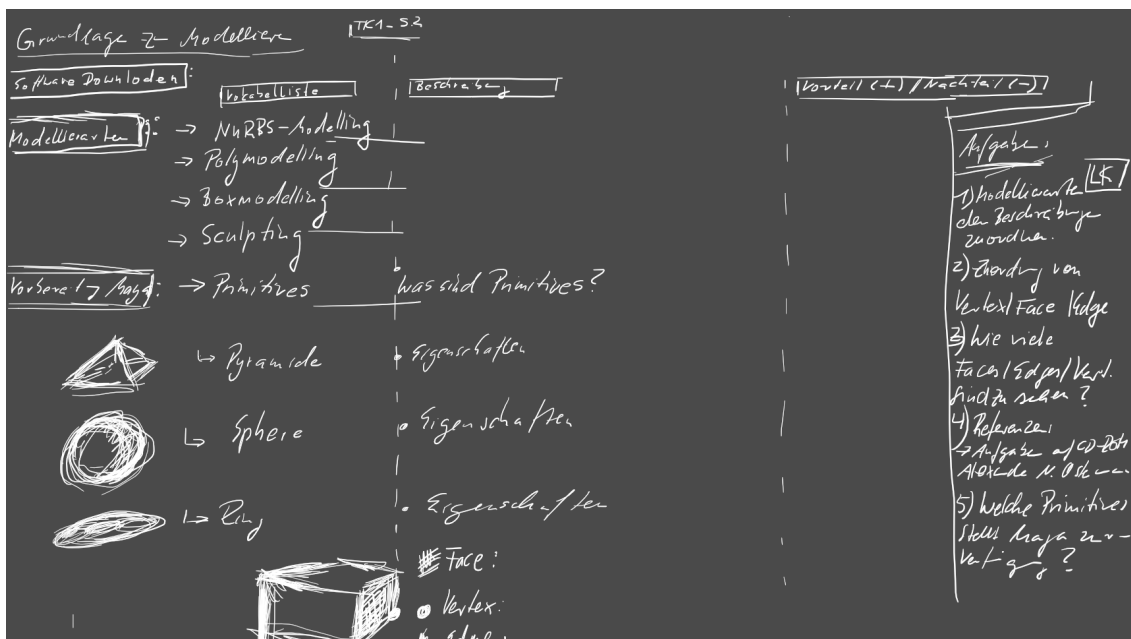 Grundlage zu Modelliere
TK1-5.2
Software Downloaden:
Vokabelliste
Beschreibung
Vorteil (+) / Nachteil (-)
Modellierarten:
→ NURBS-Modelling
→ Polymodelling
→ Boxmodelling
→ Sculpting
→ Primitives
was sind Primitives?
↳ Pyramide
• Eigenschaften
↳ Sphere
• Eigenschaften
↳ Ring
• Eigenschaften
Face:
Vertex:
Edge:
Aufgabe:
LK
1) Modellierarten
den Beschreibunge
zuordnen.
2) Zuordnung von
Vertex/Face/Edge
3) Wie viele
Faces/Edges/Vert.
sind zu sehen?
4) Referenzen
→ Aufgabe auf CD-Rom
5) Welche Primitives
stellt Maya zur
Verfügung?